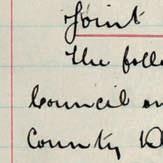 Joint
The foll
Council on
County